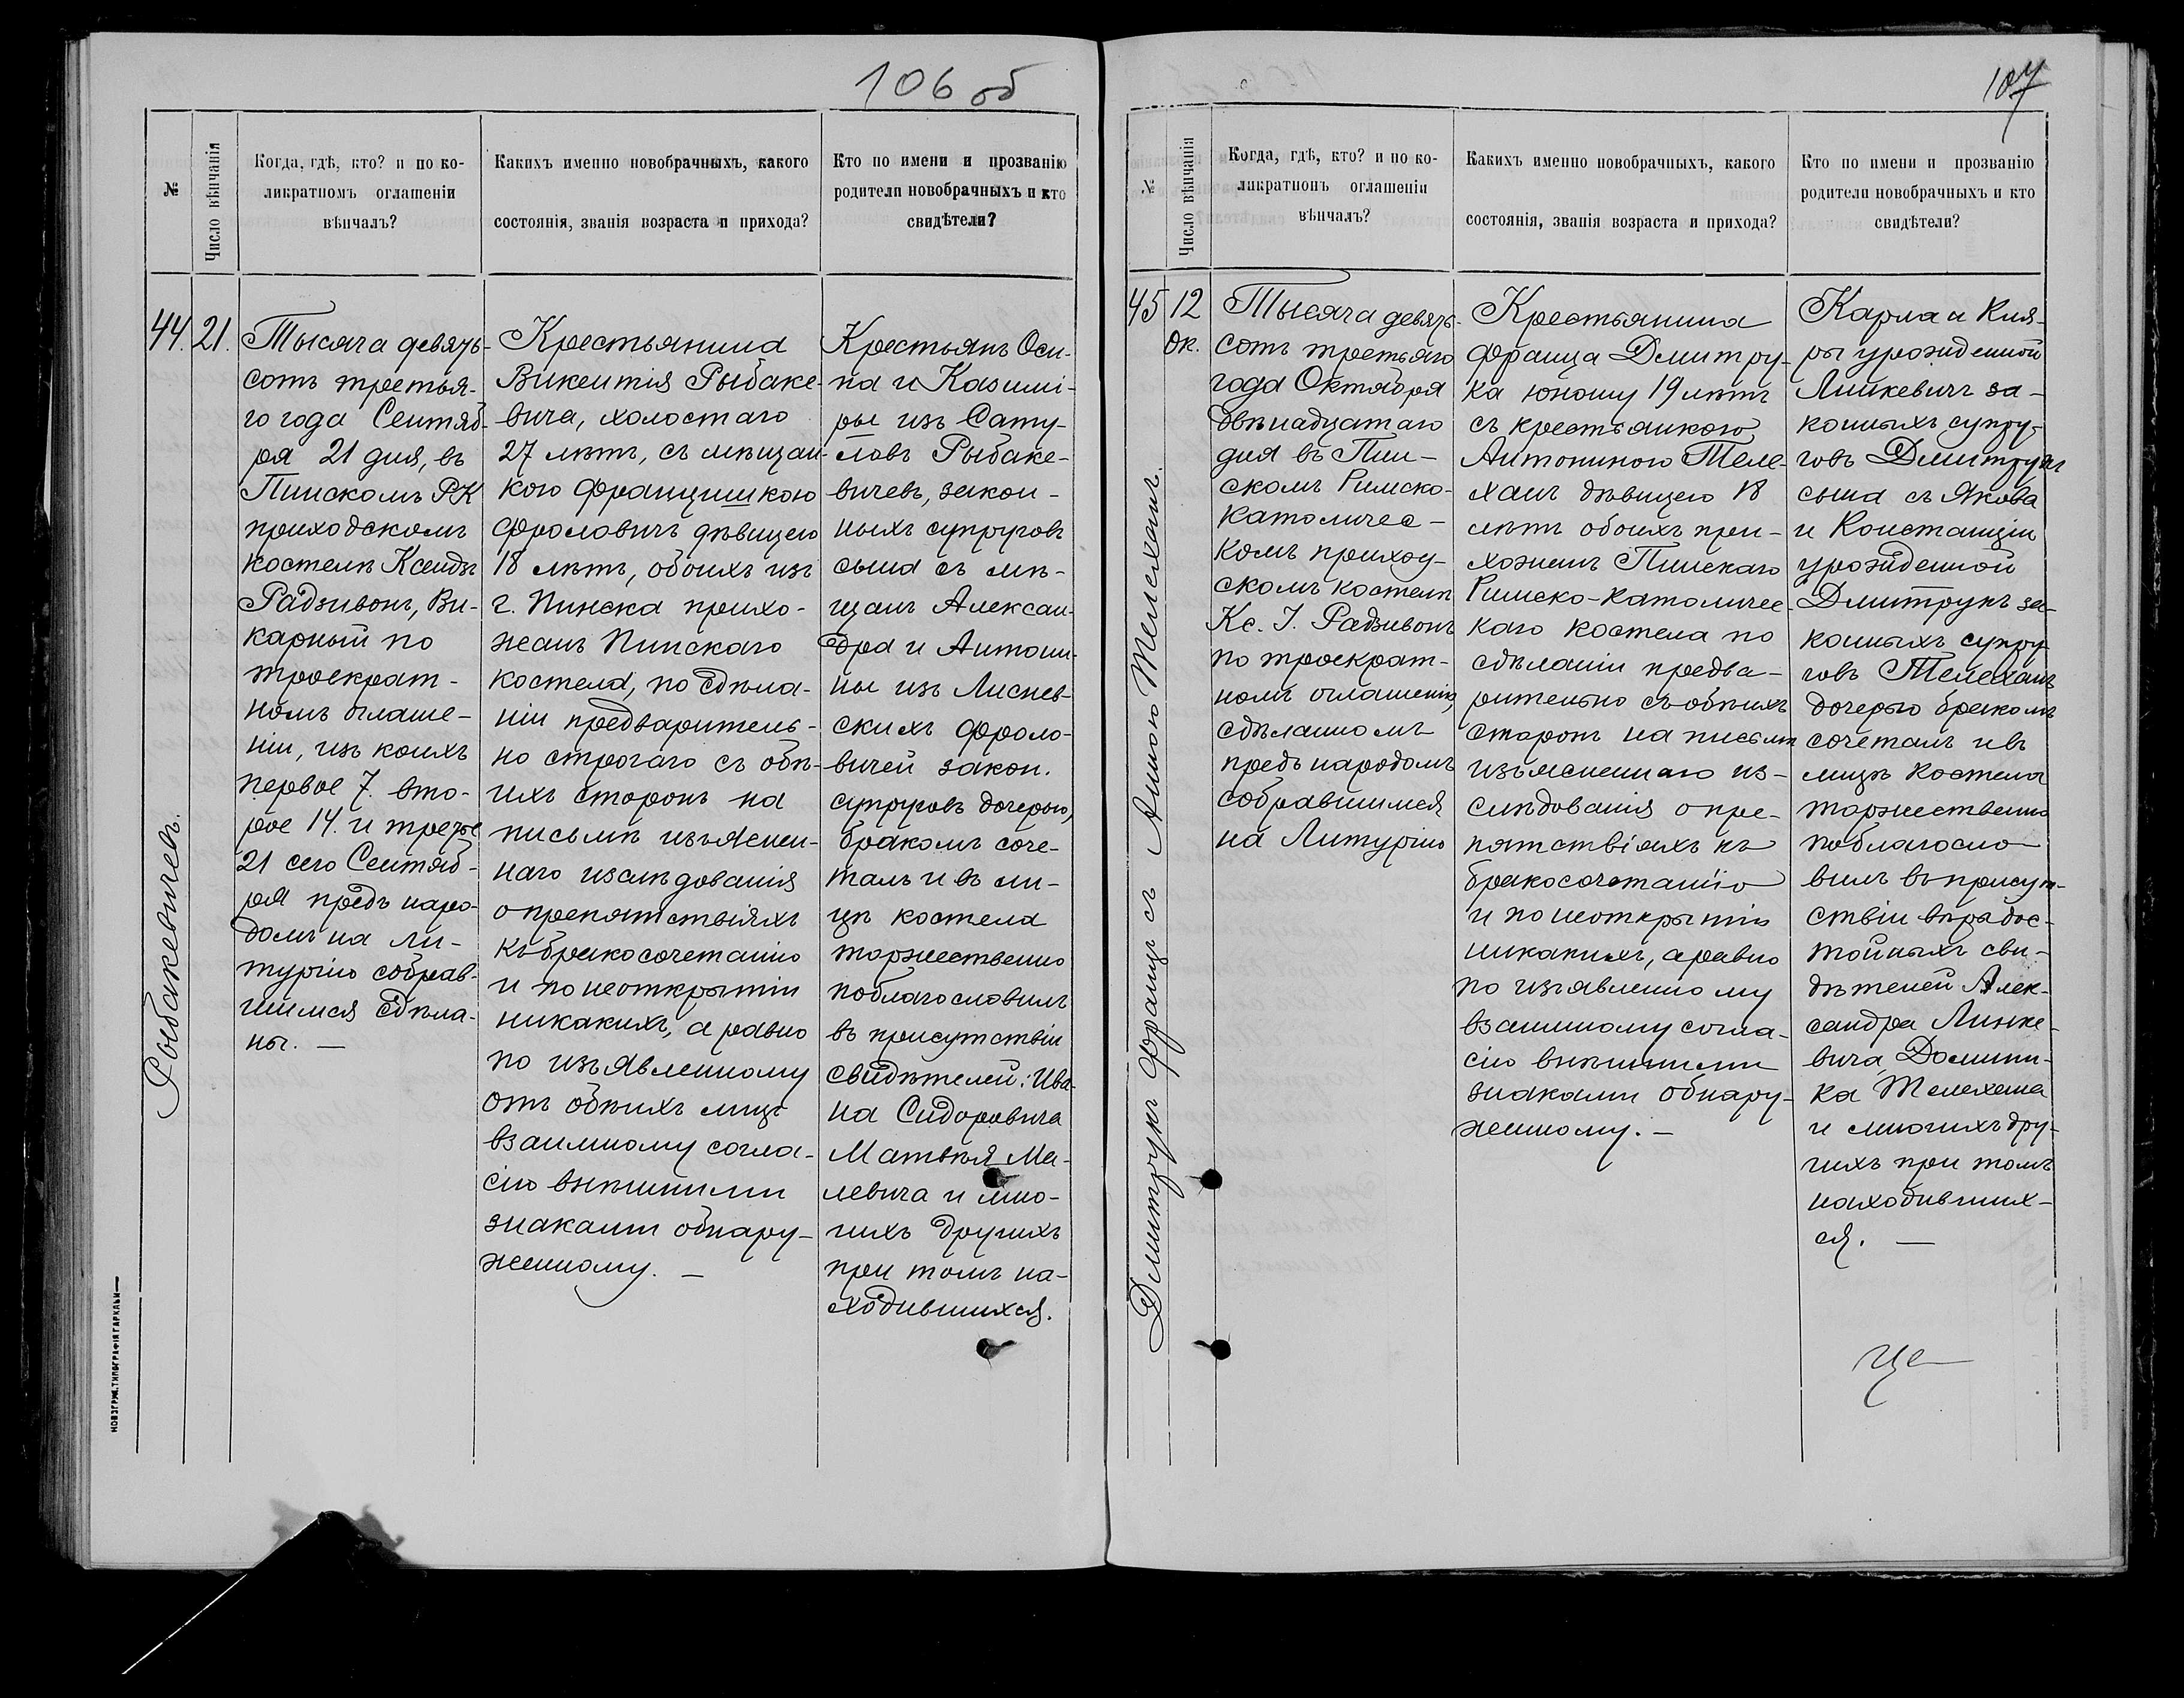 106 об
№
Число вѣнчанія
Когда, гдѣ, кто? и по ко-
ликратномъ оглашеніи
вѣнчалъ?
Какихъ именно новобрачныхъ, какого
состоянія, званія возраста и прихода?
Кто по имени и прозванію
родители новобрачныхъ и кто
свидѣтели?
Рыбакевичевъ.
44. 21.
Тысяча девять-
сотъ третья-
го года Сентяб-
ря 21 дня, въ
Пинскомъ РК
приходскомъ
костелѣ Ксендзъ
Радзивонъ, Ви-
карный по
троекрат-
номъ оглаше-
ніи, изъ коихъ
первое 7. вто-
рое 14. и третье
21 сего Сентяб-
ря предъ наро-
домъ на ли-
тургію собрав-
шимся сдѣла-
ны. —
Крестьянина
Викентія Рыбаке-
вича, холостаго
27 лѣтъ, съ мѣщан-
кою Францишкою
Фроловичъ дѣвицею
18 лѣтъ, обоихъ изъ
г. Пинска прихо-
жанъ Пинскаго
костела, по сдѣла-
ніи предваритель-
но строгаго съ обѣ-
ихъ сторонъ на
письмѣ изъяснен-
наго изслѣдованія
о препятствіяхъ
къ бракосочетанію
и по неоткрытіи
никакихъ, а равно
по изъявленному
отъ обѣихъ лицъ
взаимному согла-
сію внѣшними
знаками обнару-
женному. —
Крестьянъ Оси-
па и Казимі-
ры изъ Сату-
ловъ Рыбаке-
вичевъ, закон-
ныхъ супруговъ
сына съ мѣ-
щанъ Алексан-
дра и Антони-
ны изъ Лиснев-
скихъ Фроло-
вичей закон.
супруговъ дочерью,
бракомъ соче-
талъ и въ ли-
цѣ костела
торжественно
поблагословилъ
въ присутствіи
свидѣтелей: Ива-
на Сидоровича
Матвѣя Ма-
левича и мно-
гихъ другихъ
при томъ на-
ходившихся.
НОВЗГРУДК. ТИПОГРАФІЯ ГАРКАВИ
107
№
Число вѣнчанія
Когда, гдѣ, кто? и по ко-
ликратномъ оглашеніи
вѣнчалъ?
Какихъ именно новобрачныхъ, какого
состоянія, званія возраста и прихода?
Кто по имени и прозванію
родители новобрачныхъ и кто
свидѣтели?
Дмитрукъ Францъ съ Анною Телеханъ.
45 12
Ок.
Тысяча девять-
сотъ третьяго
года Октября
двѣнадцатаго
дня въ Пин-
скомъ Римско-
католичес-
комъ приход-
скомъ костелѣ
Кс. I. Радзивонъ
по троекрат-
номъ оглашеніи,
сдѣланномъ
предъ народомъ
собравшимся
на Литургію
Крестьянина
Франца Дмитру-
ка юношу 19 лѣтъ
съ крестьянкою
Антониною Теле-
ханъ дѣвицею 18
лѣтъ обоихъ при-
хожанъ Пинскаго
Римско-Католичес-
каго костела по
сдѣланіи предва-
рительно съ обѣихъ
сторонъ на письмѣ
изъясненнаго из-
слѣдованія о пре-
пятствіяхъ къ
бракосочетанію
и по неоткрытіи
никакихъ, а равно
по изъявленному
взаимному согла-
сію внѣшними
знаками обнару-
женному. —
Карла и Кля-
ры урожденной
Линкевичъ за-
конныхъ супру-
говъ Дмитрукъ
сына съ Якова
и Констанціи
урожденной
Дмитрукъ за-
конныхъ супру-
говъ Телеханъ
дочерью бракомъ
сочеталъ и въ
лицѣ костела
торжественно
поблагосло-
вилъ въ присут-
ствіи вѣрадос-
тойныхъ сви-
дѣтелей Алек-
сандра Линке-
вича, Домини-
ка Телехана
и многихъ дру-
гихъ при томъ
находивших-
ся. —